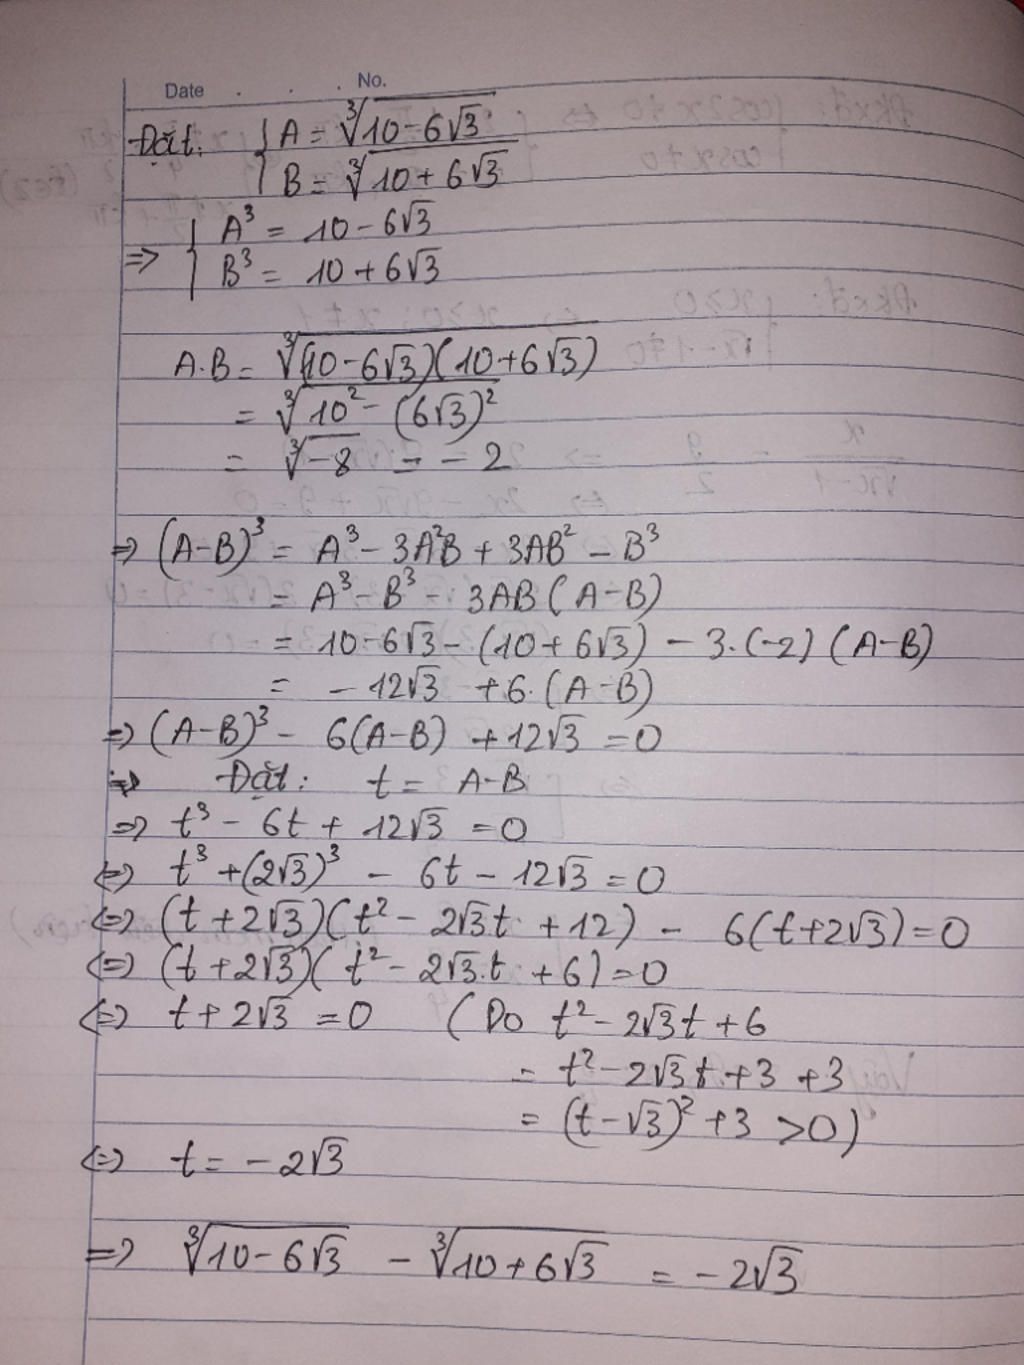 Date . . . No.
Đặt: { A = ∛(10 - 6√3)
{ B = ∛(10 + 6√3)
=> { A³ = 10 - 6√3
{ B³ = 10 + 6√3
A.B = ∛((10 - 6√3)(10 + 6√3))
= ∛(10² - (6√3)²)
= ∛-8 = -2
=> (A-B)³ = A³ - 3A²B + 3AB² - B³
= A³ - B³ - 3AB (A-B)
= 10 - 6√3 - (10 + 6√3) - 3.(-2) (A-B)
= - 12√3 + 6.(A-B)
=> (A-B)³ - 6(A-B) + 12√3 = 0
=> Đặt: t = A-B
=> t³ - 6t + 12√3 = 0
<=> t³ + (2√3)³ - 6t - 12√3 = 0
<=> (t + 2√3)(t² - 2√3t + 12) - 6(t+2√3) = 0
<=> (t + 2√3)(t² - 2√3.t + 6) = 0
<=> t + 2√3 = 0 (Do t² - 2√3t + 6
= t² - 2√3t + 3 + 3
= (t - √3)² + 3 > 0)
<=> t = - 2√3
=> ∛(10 - 6√3) - ∛(10 + 6√3) = - 2√3